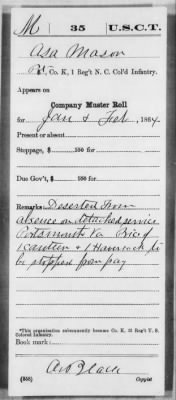 M 35 U.S.C.T.
Asa Mason
Pvt, Co. K, 1 Reg't N. C. Col'd Infantry.
Appears on
Company Muster Roll
for Jan & Feb, 1864.
Present or absent
Stoppage, $ 100 for
Due Gov't, $ 100 for
Remarks: Deserted from
absence on detached service
Portsmouth Va Price of
1 canteen & 1 Haversack to
be stopped from pay
*This organization subsequently became Co. K, 35 Reg't U. S.
Colored Infantry.
Book mark:
(358) Copyist